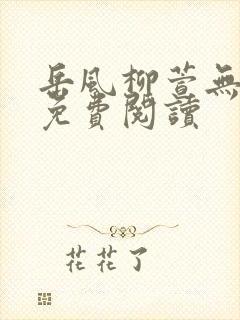 岳风柳萱無
免費閱讀
花花了